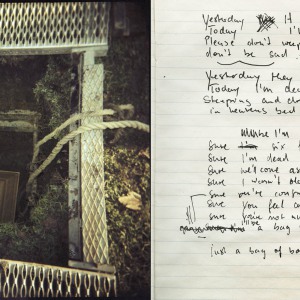 Yesterday
Today I'
Please don't weep
don't be sad
Yesterday they
Today I'm dea
Sleeping and
in heavens bed
I'm
Sure six f
Sure I'm dead
Sure we'll come as
Sure I won't
Sure
Sure you feel
Sure you're not
a bag
just a bag of bo